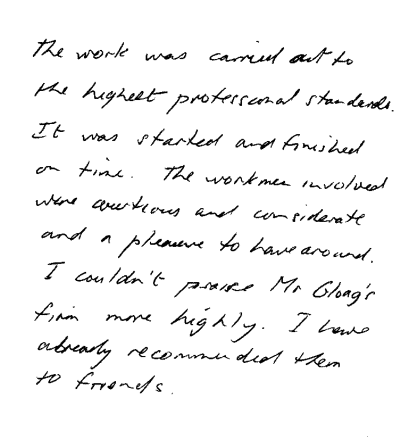 The work was carried out to
the highest professional standards.
It was started and finished
on time. The workmen involved
were courteous and considerate
and a pleasure to have around.
I couldn't praise Mr Gloag's
firm more highly. I have
already recommended them
to friends.